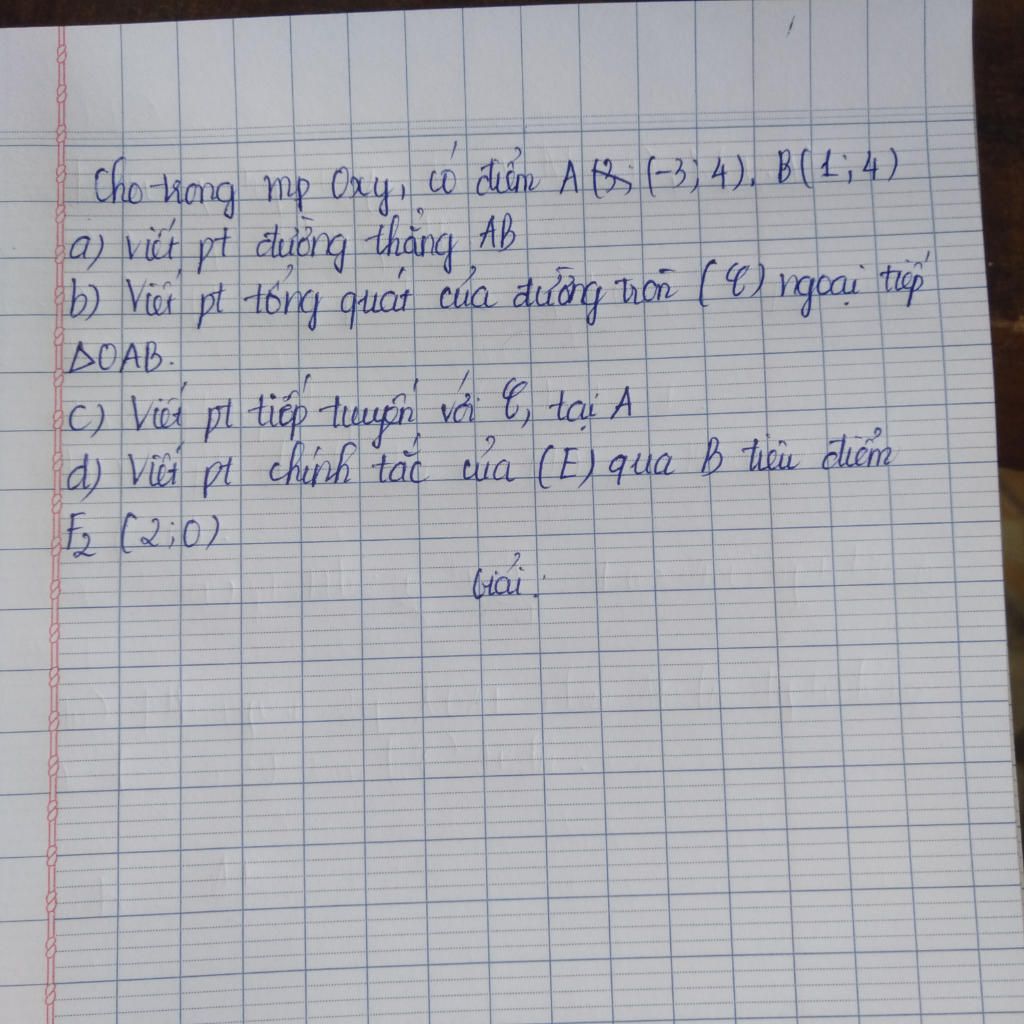 Cho trong mp Oxy, có điểm A (-3; 4), B(1; 4)
a) Viết pt đường thẳng AB
b) Viết pt tổng quát của đường tròn (C) ngoại tiếp
ΔOAB.
c) Viết pt tiếp tuyến với C, tại A
d) Viết pt chính tắc của (E) qua B tiêu điểm
F₂ (2; 0)
Giải: